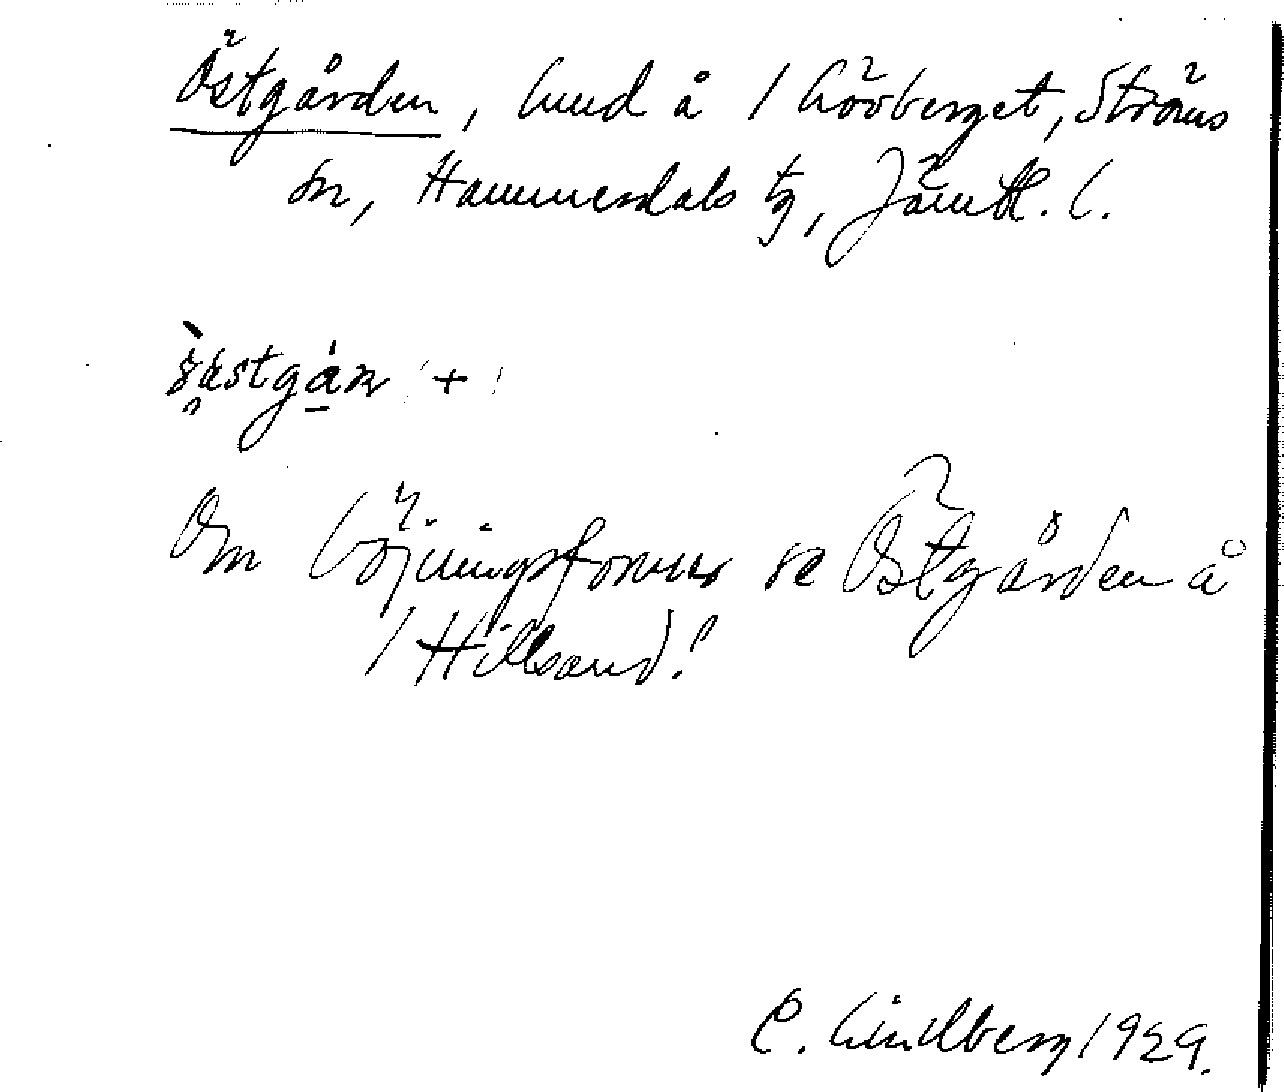 Östgården, hmd å 1 Lövberget, Ströms
sn, Hammerdals tg, Jämtl. l.
östgán +
Om böjningsformer se Östgården å
1 Hillsand!
C. Lindberg 1929.